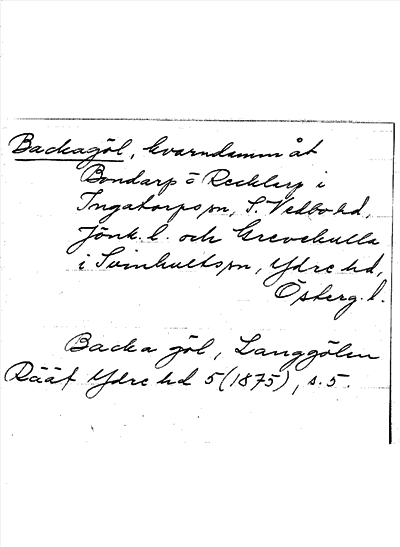 Backagöl, kvarndamm åt
Bondarp o Recklarp i
Ingatorps sn, S. Vedbo hd,
Jönk. l. och Grevekulla
i Svinhults sn, Ydre hd,
Österg. l.
Backa göl, Langgölen
Rääf Ydre hd 5 (1875), s. 5.